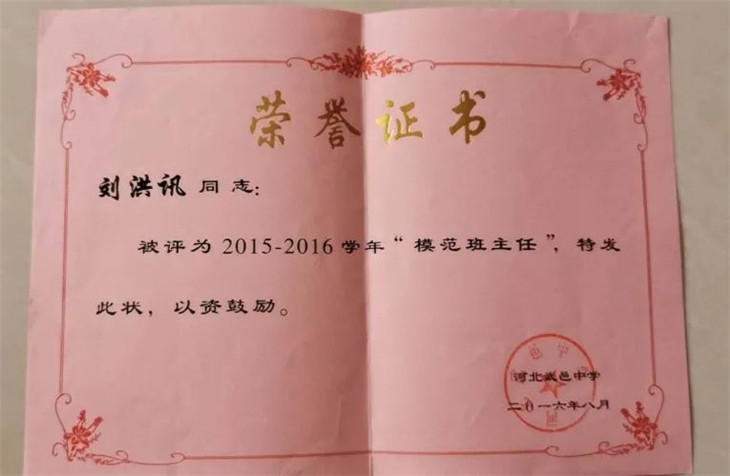 荣誉证书
刘洪讯 同志:
被评为 2015-2016 学年“模范班主任”,特发
此状，以资鼓励。
河北武邑中学
二〇一六年八月